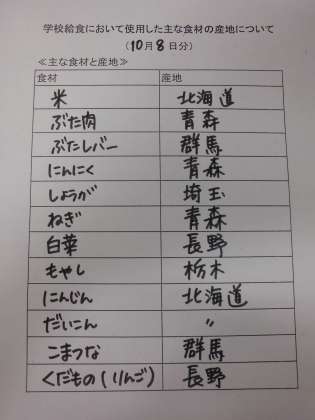 学校給食において使用した主な食材の産地について
（10月8日分）
≪主な食材と産地≫
食材 産地
米 北海道
ぶた肉 青森
ぶたレバー 群馬
にんにく 青森
しょうが 埼玉
ねぎ 青森
白菜 長野
もやし 栃木
にんじん 北海道
だいこん 〃
こまつな 群馬
くだもの(りんご) 長野